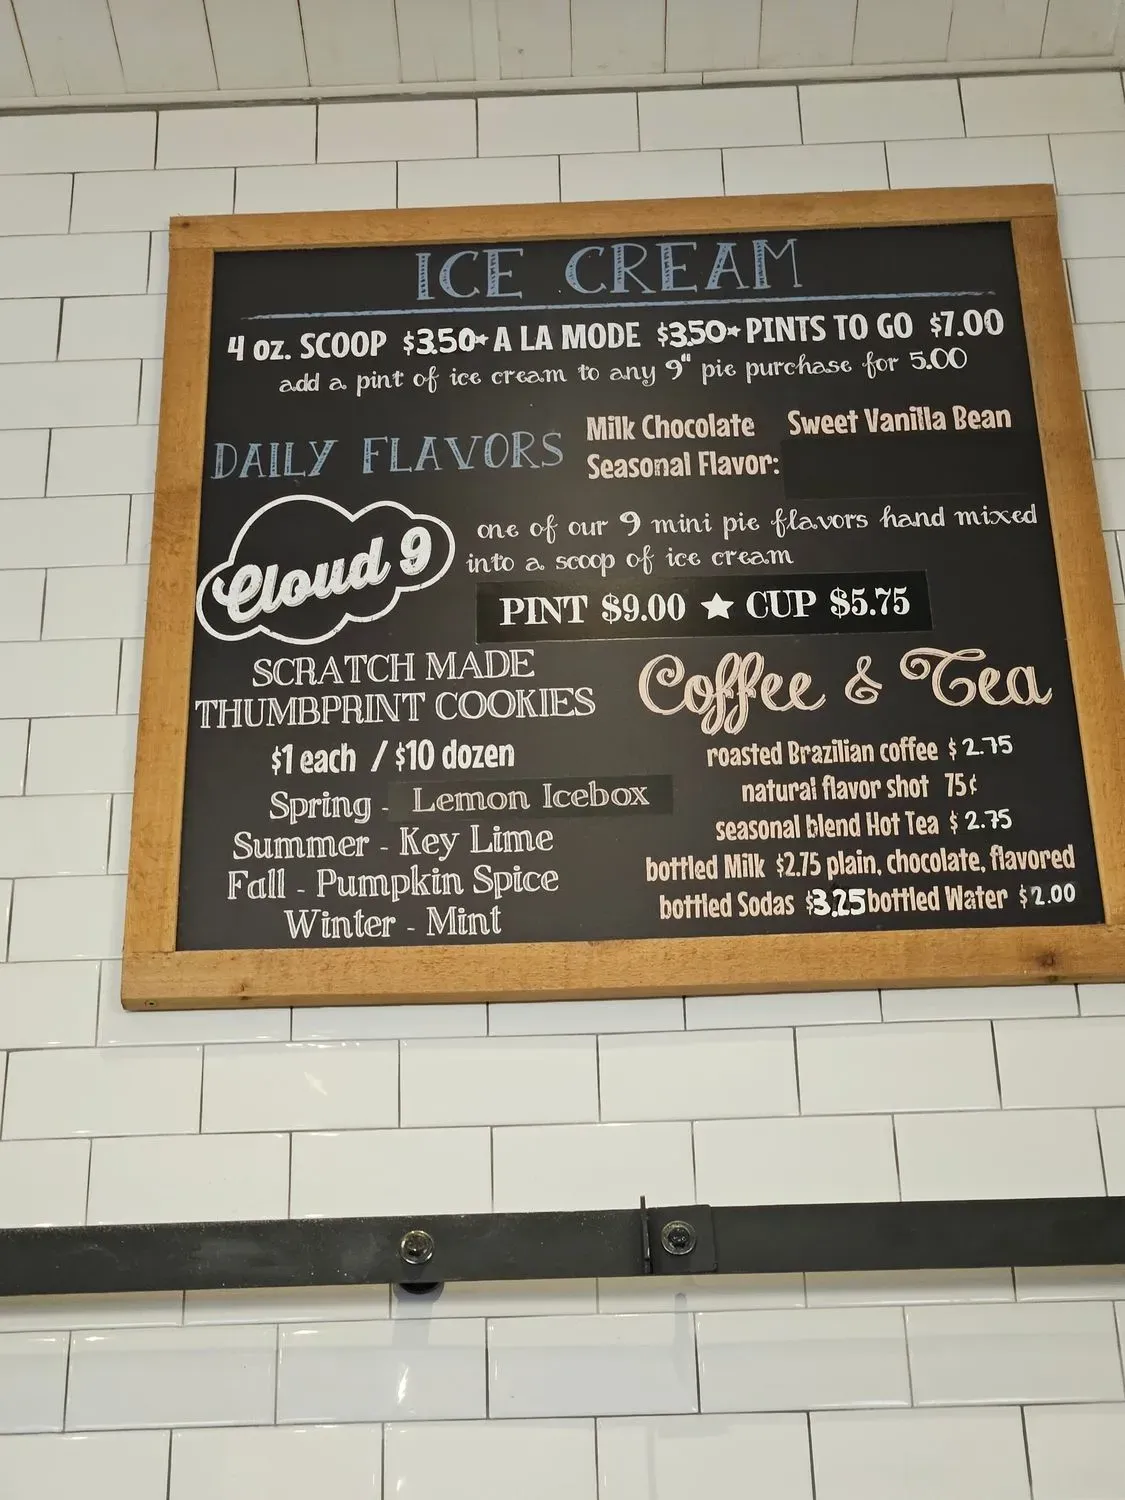 ICE CREAM
4 oz. SCOOP $3.50* A LA MODE $3.50* PINTS TO GO $7.00
add a pint of ice cream to any 9" pie purchase for 5.00
DAILY FLAVORS
Milk Chocolate Sweet Vanilla Bean
Seasonal Flavor:
Cloud 9
one of our 9 mini pie flavors hand mixed
into a scoop of ice cream
PINT $9.00 ★ CUP $5.75
SCRATCH MADE
THUMBPRINT COOKIES
$1 each / $10 dozen
Spring - Lemon Icebox
Summer - Key Lime
Fall - Pumpkin Spice
Winter - Mint
Coffee & Tea
roasted Brazilian coffee $2.75
natural flavor shot 75¢
seasonal blend Hot Tea $2.75
bottled Milk $2.75 plain, chocolate, flavored
bottled Sodas $3.25 bottled Water $2.00